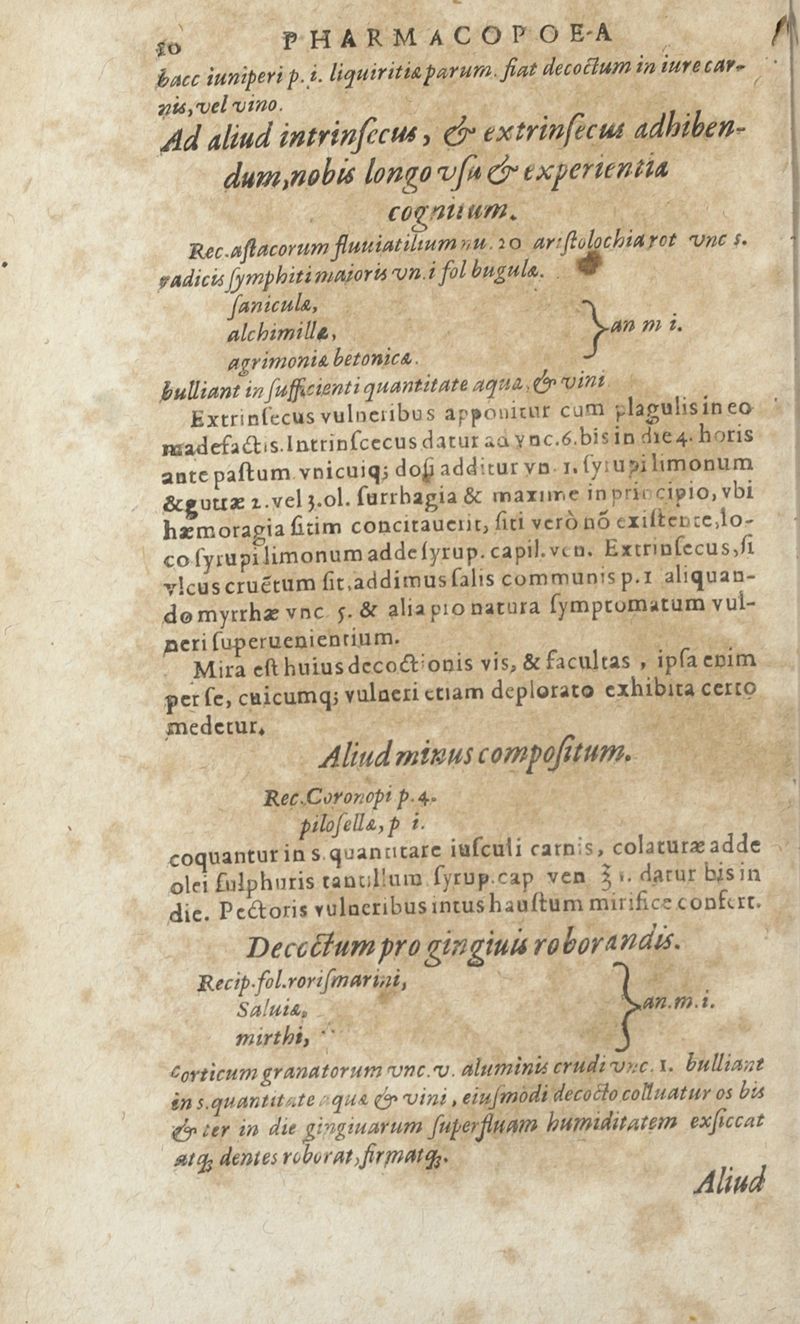 20 PHARMACOPOEA
bacc iuniperi p. i. liquiritiæ parum. fiat decoctum in iure car-
nis, vel vino.
Ad aliud intrinſecus, & extrinſecus adhiben-
dum, nobis longo vſu & experientia
cognitum.
Rec. aſtacorum fluuiatilium nu. 20 ariſtolochia rot vnc s.
radicis ſymphiti maioris vn. i fol bugulæ.
ſaniculæ,
alchimillæ, } an m i.
agrimoniæ betonicæ.
bulliant in ſufficienti quantitate aquæ, & vini
Extrinſecus vulneribus apponitur cum plagulis in eo
madefactis. Intrinſcecus datur ad vnc. 6. bis in die 4. horis
ante paſtum vnicuiq; doſi additur vn. 1. ſyrupi limonum
& guttæ 2. vel 3. ol. ſurrhagia & maxime in principio, vbi
hæmoragia ſitim concitauerit, ſiti verò nõ exiſtente, lo-
co ſyrupi limonum adde ſyrup. capil. ven. Extrinſecus, ſi
vlcus cruẽtum ſit, addimus ſalis communis p. 1 aliquan-
do myrrhæ vnc ʒ. & alia pro natura ſymptomatum vul-
neri ſuperuenientium.
Mira eſt huius decoctionis vis, & facultas, ipſa enim
per ſe, cuicumq; vulneri etiam deplorato exhibita certo
medetur.
Aliud minus compoſitum.
Rec. Coronopi p. 4.
piloſellæ, p i.
coquantur in s. quantitate iuſculi carnis, colaturæ adde
olei ſulphuris tantillum ſyrup. cap ven ℥ i. datur bis in
die. Pectoris vulneribus intus hauſtum mirifice confert.
Decoctum pro gingiuis roborandis.
Recip. fol. roriſmarini,
Saluiæ, } an. m. i.
mirthi,
Corticum granatorum vnc. v. aluminis crudi vnc. 1. bulliant
in s. quantitate aquæ & vini, eiuſmodi decocto colluatur os bis
& ter in die gingiuarum ſuperfluam humiditatem exſiccat
atq; dentes roborat, firmatq;.
Aliud